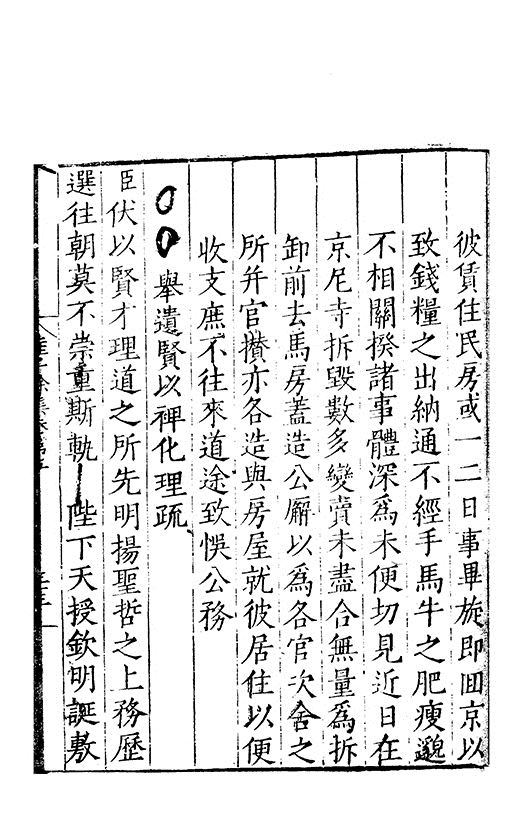 彼賃住民房或一二日事畢旋即囬京以
致錢糧之出納通不經手馬牛之肥瘦邈
不相關揆諸事體深爲未便切見近日在
京尼寺拆毀數多變賣未盡合無量爲拆
卸前去馬房蓋造公廨以爲各官次舍之
所幷官攢亦各造與房屋就彼居住以便
收支庶不往來道途致悞公務
舉遺賢以裨化理疏
臣伏以賢才理道之所先明揚聖哲之上務歷
選往朝莫不崇重斯軌 陛下天授欽明誕敷